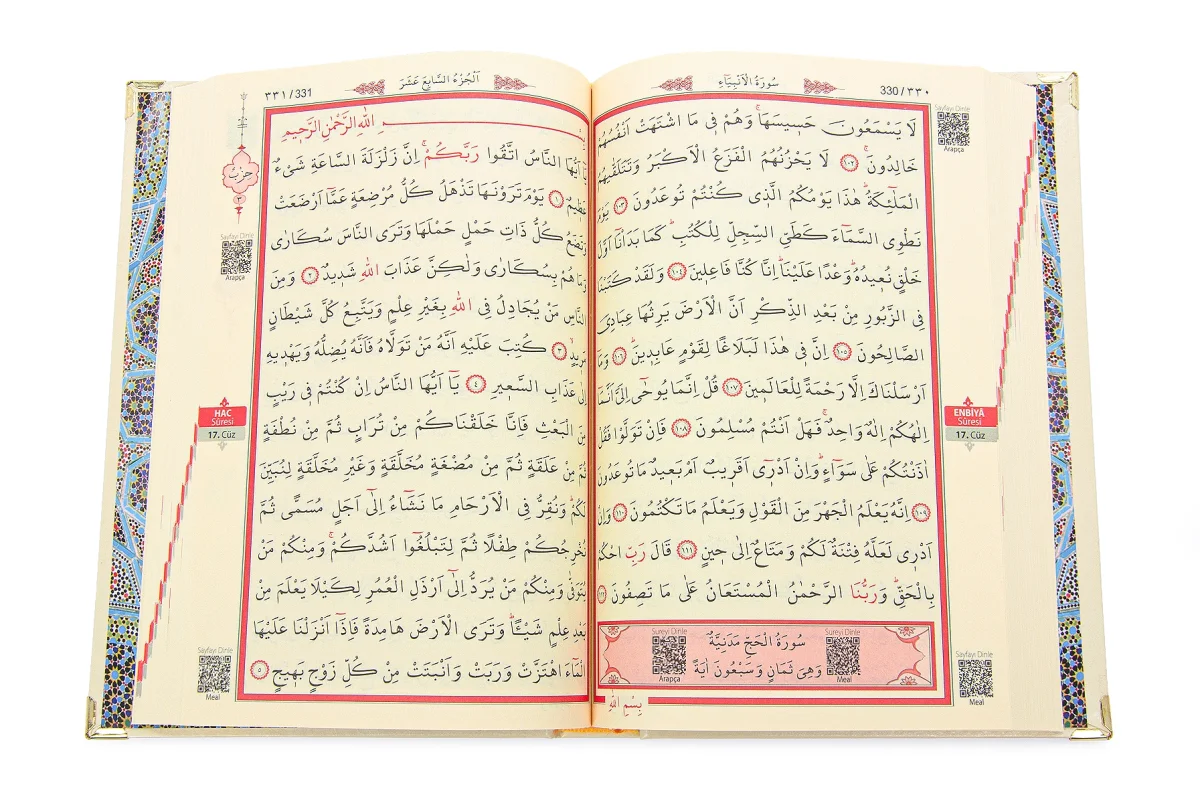 سُورَةُ الْاَنْبِيَاءِ
330/٣٣٠
Sayfayı Dinle
Arapça
لَا يَسْمَعُونَ حَسٖيسَهَاۚ وَهُمْ فٖى مَا اشْتَهَتْ اَنْفُسُهُمْ
خَالِدُونَۚ ﴿١٠٢﴾ لَا يَحْزُنُهُمُ الْفَزَعُ الْاَكْبَرُ وَتَتَلَقّٰيهُمُ
الْمَلٰٓئِكَةُۜ هٰذَا يَوْمُكُمُ الَّذٖى كُنْتُمْ تُوعَدُونَ ﴿١٠٣﴾ يَوْمَ
نَطْوِى السَّمَٓاءَ كَطَىِّ السِّجِلِّ لِلْكُتُبِۜ كَمَا بَدَأْنَٓا اَوَّلَ
خَلْقٍ نُعٖيدُهُۜ وَعْدًا عَلَيْنَاۜ اِنَّا كُنَّا فَاعِلٖينَ ﴿١٠٤﴾ وَلَقَدْ كَتَبْنَا
فِى الزَّبُورِ مِنْ بَعْدِ الذِّكْرِ اَنَّ الْاَرْضَ يَرِثُهَا عِبَادِىَ
الصَّالِحُونَ ﴿١٠٥﴾ اِنَّ فٖى هٰذَا لَبَلَاغًا لِقَوْمٍ عَابِدٖينَۜ ﴿١٠٦﴾ وَمَٓا
اَرْسَلْنَاكَ اِلَّا رَحْمَةً لِلْعَالَمٖينَ ﴿١٠٧﴾ قُلْ اِنَّمَا يُوحٰٓى اِلَىَّ اَنَّمَٓا
اِلٰهُكُمْ اِلٰهٌ وَاحِدٌۚ فَهَلْ اَنْتُمْ مُسْلِمُونَ ﴿١٠٨﴾ فَاِنْ تَوَلَّوْا فَقُلْ
اٰذَنْتُكُمْ عَلٰى سَوَٓاءٍۜ وَاِنْ اَدْرٖٓى اَقَرٖيبٌ اَمْ بَعٖيدٌ مَا تُوعَدُونَ
﴿١٠٩﴾ اِنَّهُ يَعْلَمُ الْجَهْرَ مِنَ الْقَوْلِ وَيَعْلَمُ مَا تَكْتُمُونَ ﴿١١٠﴾ وَاِنْ
اَدْرٖى لَعَلَّهُ فِتْنَةٌ لَكُمْ وَمَتَاعٌ اِلٰى حٖينٍ ﴿١١١﴾ قَالَ رَبِّ احْكُمْ
بِالْحَقِّۜ وَرَبُّنَا الرَّحْمٰنُ الْمُسْتَعَانُ عَلٰى مَا تَصِفُونَ ﴿١١٢﴾
ENBİYÂ
Sûresi
17. Cüz
Sureyi Dinle
Arapça
سُورَةُ الْحَجِّ مَدَنِيَّةٌ
وَهِىَ ثَمَانٍ وَسَبْعُونَ اٰيَةً
Sureyi Dinle
Meal
Sayfayı Dinle
Meal
بِسْمِ اللّٰهِ
اَلْجُزْءُ السَّابِعَ عَشَرَ
٣٣١/331
حِزْبُ
٣
Sayfayı Dinle
Arapça
بِسْمِ اللّٰهِ الرَّحْمٰنِ الرَّحٖيمِ
يَٓا اَيُّهَا النَّاسُ اتَّقُوا رَبَّكُمْۚ اِنَّ زَلْزَلَةَ السَّاعَةِ شَىْءٌ
عَظٖيمٌ ﴿١﴾ يَوْمَ تَرَوْنَهَا تَذْهَلُ كُلُّ مُرْضِعَةٍ عَمَّٓا اَرْضَعَتْ
وَتَضَعُ كُلُّ ذَاتِ حَمْلٍ حَمْلَهَا وَتَرَى النَّاسَ سُكَارٰى
وَمَا هُمْ بِسُكَارٰى وَلٰكِنَّ عَذَابَ اللّٰهِ شَدٖيدٌ ﴿٢﴾ وَمِنَ
النَّاسِ مَنْ يُجَادِلُ فِى اللّٰهِ بِغَيْرِ عِلْمٍ وَيَتَّبِعُ كُلَّ شَيْطَانٍ
مَرٖيدٍۙ ﴿٣﴾ كُتِبَ عَلَيْهِ اَنَّهُ مَنْ تَوَلَّاهُ فَاَنَّهُ يُضِلُّهُ وَيَهْدٖيهِ
اِلٰى عَذَابِ السَّعٖيرِ ﴿٤﴾ يَٓا اَيُّهَا النَّاسُ اِنْ كُنْتُمْ فٖى رَيْبٍ
مِنَ الْبَعْثِ فَاِنَّا خَلَقْنَاكُمْ مِنْ تُرَابٍ ثُمَّ مِنْ نُطْفَةٍ
ثُمَّ مِنْ عَلَقَةٍ ثُمَّ مِنْ مُضْغَةٍ مُخَلَّقَةٍ وَغَيْرِ مُخَلَّقَةٍ لِنُبَيِّنَ
لَكُمْۜ وَنُقِرُّ فِى الْاَرْحَامِ مَا نَشَٓاءُ اِلٰٓى اَجَلٍ مُسَمًّى ثُمَّ
نُخْرِجُكُمْ طِفْلًا ثُمَّ لِتَبْلُغُٓوا اَشُدَّكُمْۚ وَمِنْكُمْ مَنْ
يُتَوَفّٰى وَمِنْكُمْ مَنْ يُرَدُّ اِلٰٓى اَرْذَلِ الْعُمُرِ لِكَيْلَا يَعْلَمَ مِنْ
بَعْدِ عِلْمٍ شَيْـًٔاۜ وَتَرَى الْاَرْضَ هَامِدَةً فَاِذَٓا اَنْزَلْنَا عَلَيْهَا
الْمَٓاءَ اهْتَزَّتْ وَرَبَتْ وَاَنْبَتَتْ مِنْ كُلِّ زَوْجٍ بَهٖيجٍ ﴿٥﴾
HAC
Sûresi
17. Cüz
Sayfayı Dinle
Meal